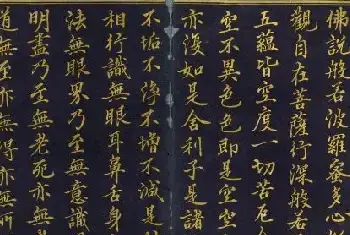 佛說般若波羅蜜多心經
觀自在菩薩行深般若
五蘊皆空度一切苦厄
空不異色色即是空空
亦復如是舍利子是諸
不垢不淨不增不減是
相行識無眼耳鼻舌身
法無眼界乃至無意識
明盡乃至無老死亦無
道無智亦無得以無所